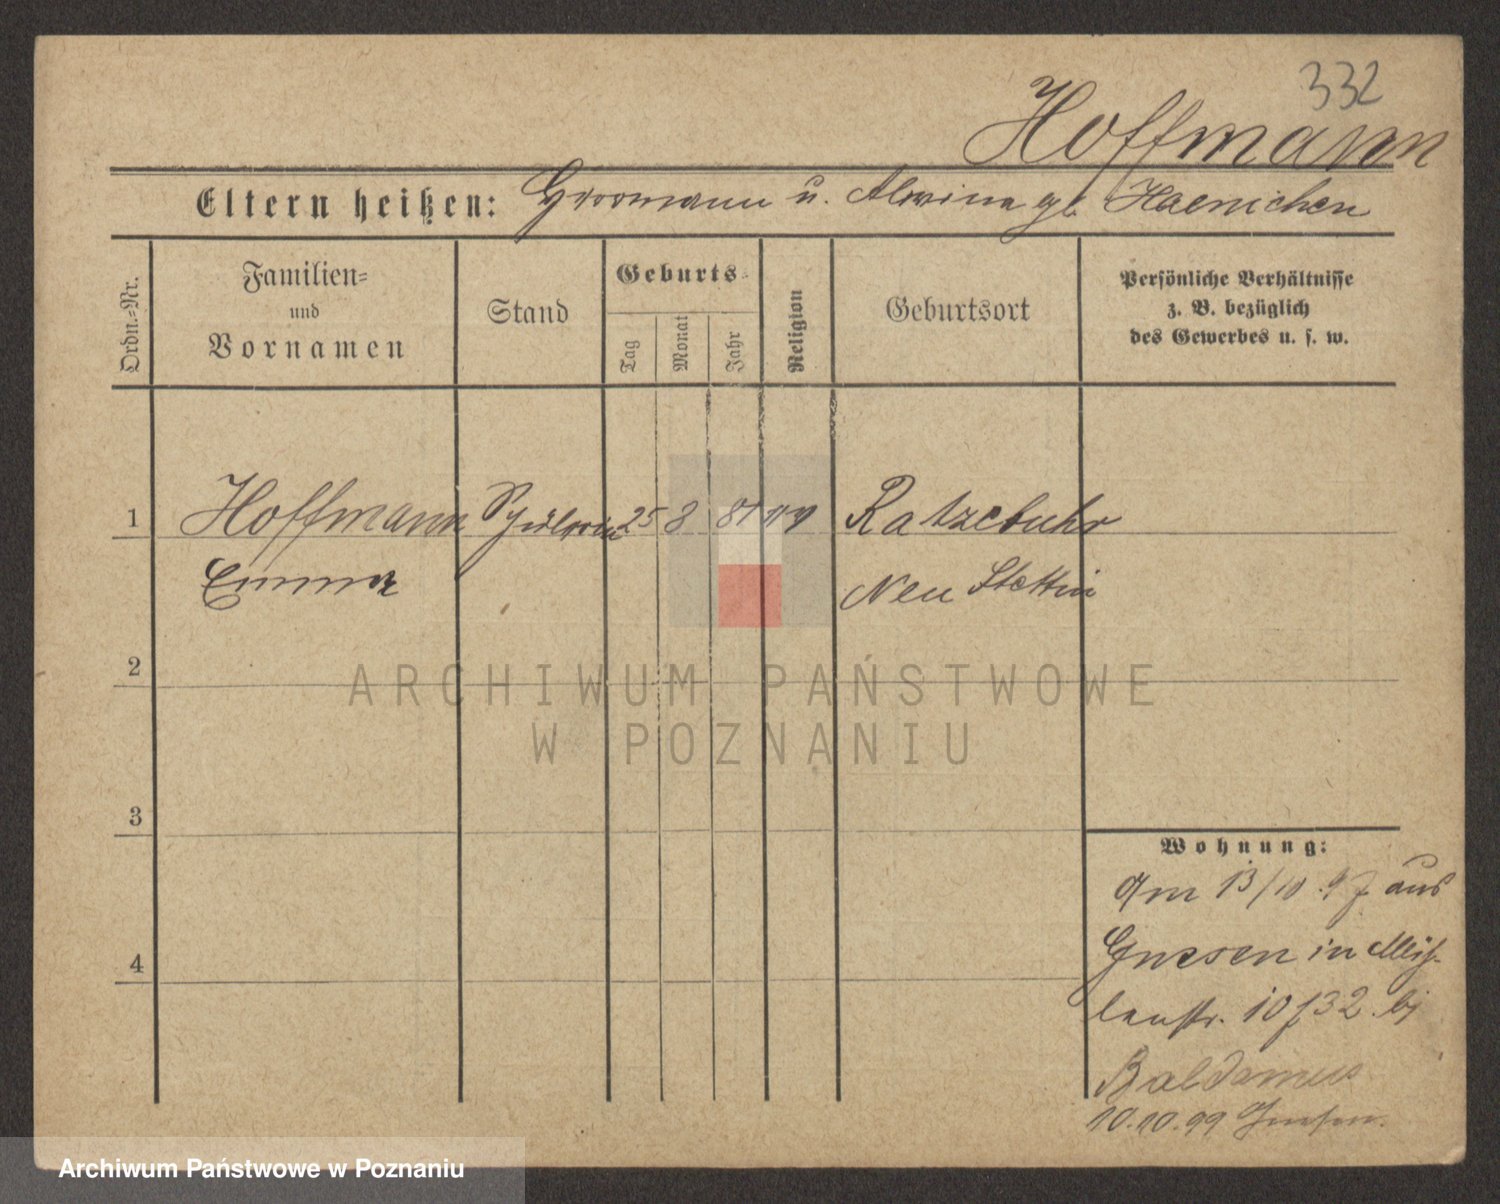 332
Hoffmann
Eltern heißen: Hermann u. Alwine gb. Haenichen
Ordn.-Nr.
Familien-
und
Vornamen
Stand
Geburts-
Tag
Monat
Jahr
Religion
Geburtsort
Persönliche Verhältnisse
z. B. bezüglich
des Gewerbes u. s. w.
1 Hoffmann Schülerin 25 8 81 Ratzebuhr
Emma Neu Stettin
2
ARCHIWUM PAŃSTWOWE
W POZNANIU
3
Wohnung:
Am 13/10. 97 aus
4 Gnesen in
10 bei
Baldamus
10.10.99 Gnesen.
Archiwum Państwowe w Poznaniu